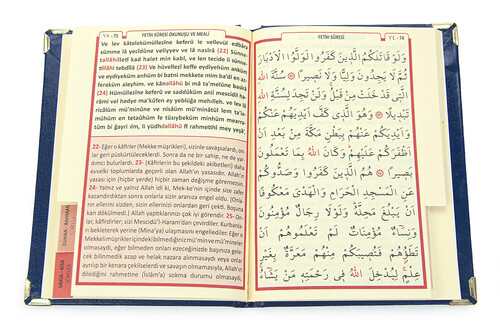 ٧٥ - 75
FETİH SÛRESİ OKUNUŞU VE MEALİ
Ve lev kâtelekümüllezîne keferû le vellevül edbâra
sümme lâ yecidûne veliyyen ve lâ nasîrâ (22) Sünne-
tallâhilletî kad halet min kabl, ve len tecide li sünne-
tillâhi tebdîlâ (23) Ve hüvellezî keffe eydiyehüm anküm
ve eydiyeküm anhüm bi batni mekkete mim ba'di en az-
feraküm aleyhim, ve kânallâhü bi mâ ta'melûne basîrâ
(24) Hümüllezîne keferû ve saddûküm anil mescidil ha-
râmi vel hedye ma'kûfen ey yeblüğa mehılleh, ve lev lâ
ricâlüm mü'minûne ve nisâüm mü'minâtül lem ta'le-
mûhüm en tetaûhüm fe tüsıybeküm minhüm mearra-
tüm bi ğayri ılm, li yüdhılallâhü fî rahmetihî mey yeşâ',
22- Eğer o kâfirler (Mekke müşrikleri), sizinle savaşsalardı, on-
lar geri püskürtüleceklerdi. Sonra da ne bir sahip, ne de yar-
dımcı bulurlardı. 23- (Kâfirlerin bu şekildeki akıbetleri) daha
evvelki toplumda geçerli olan Allah'ın yasasıdır. Allah'ın
yasası için (hiçbir yerde) hiçbir zaman değişme göremezsin.
24- Yalnız ve yalnız Allah idi ki, Mek-ke'nin içinde size zafer
kazandırdıktan sonra onlarla sizin aranıza engel oldu. (Onla-
rın ellerini sizden, sizin ellerinizi onlardan geri çekti. Boşuna
kan dökülmedi.) Allah yaptıklarınızı çok iyi görendir. 25- On-
lar, kâfirdirler; sizi Mescidü'l-Haram'dan çevirdiler. Kurbanla-
rı bekleterek yerine (Mina'ya) ulaşmasını engellediler. Eğer o
Mekkeli müşrikler içindeki bilmediğiniz mü'min ve mü'mineler
olmasaydı, eğer bilmeden onları ezeceğinizde başınıza gele-
cek bilinmedik azap ve helak nazara alınmasaydı veya onlar
ayrılıp bir kenara çekilselerdi ve savaşın olmamasıyla, Allah'ın
dilediğini rahmetine (İslâm'a) sokma durumu olmasaydı,
FETİH SÛRESİ
٧٤ - 74
وَلَوْ قَاتَلَكُمُ الَّذِينَ كَفَرُوا لَوَلَّوُا الْاَدْبَارَ
ثُمَّ لَا يَجِدُونَ وَلِيًّا وَلَا نَصِيرًا سُنَّةَ اللّٰهِ
الَّتِي قَدْ خَلَتْ مِنْ قَبْلُ وَلَنْ تَجِدَ لِسُنَّةِ اللّٰهِ
تَبْدِيلًا وَهُوَ الَّذِي كَفَّ اَيْدِيَهُمْ عَنْكُمْ
وَاَيْدِيَكُمْ عَنْهُمْ بِبَطْنِ مَكَّةَ مِنْ بَعْدِ اَنْ
اَظْفَرَكُمْ عَلَيْهِمْ وَكَانَ اللّٰهُ بِمَا تَعْمَلُونَ
بَصِيرًا هُمُ الَّذِينَ كَفَرُوا وَصَدُّوكُمْ
عَنِ الْمَسْجِدِ الْحَرَامِ وَالْهَدْيَ مَعْكُوفًا
اَنْ يَبْلُغَ مَحِلَّهُ وَلَوْلَا رِجَالٌ مُؤْمِنُونَ
وَنِسَاءٌ مُؤْمِنَاتٌ لَمْ تَعْلَمُوهُمْ اَنْ
تَطَؤُهُمْ فَتُصِيبَكُمْ مِنْهُمْ مَعَرَّةٌ بِغَيْرِ
عِلْمٍ لِيُدْخِلَ اللّٰهُ فِي رَحْمَتِهِ مَنْ يَشَاءُ